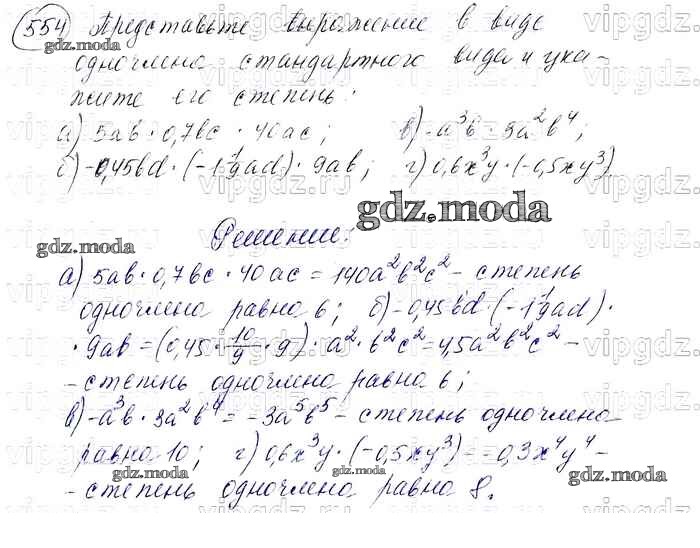 554 Представьте выражение в виде
одночлена стандартного вида и ука-
жите его степень:
а) 5ab · 0,7bc · 40ac; в) -a³b · 3a²b⁴;
б) -0,45bd · (-1 1/9 ad) · 9ab; г) 0,6x³y · (-0,5xy³)
gdz.moda
Решение:
а) 5ab · 0,7bc · 40ac = 140a²b²c² - степень
одночлена равна 6; б) -0,45bd · (-1 1/9 ad) ·
· 9ab = (0,45 · 10/9 · 9) · a² · b²c² = 4,5a²b²c² -
- степень одночлена равна 6;
в) -a³b · 3a²b⁴ = -3a⁵b⁵ - степень одночлена
равна 10; г) 0,6x³y · (-0,5xy³) = -0,3x⁴y⁴ -
- степень одночлена равна 8.